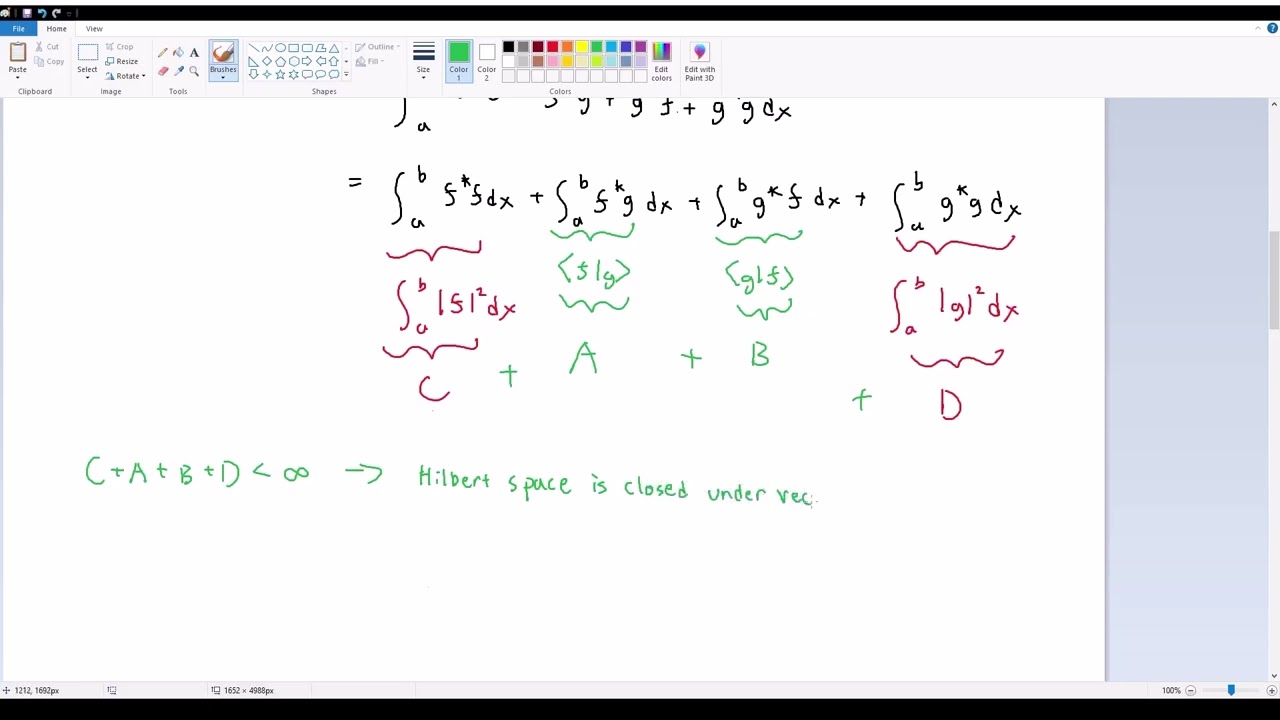 File Home View
Paste Cut Copy Select Crop Resize Rotate Brushes Outline Fill Size Color 1 Color 2 Edit colors Edit with Paint 3D
Clipboard Image Tools Shapes Colors
∫_a^b g + g f + g*g dx
= ∫_a^b f*f dx + ∫_a^b f*g dx + ∫_a^b g*f dx + ∫_a^b g*g dx
⟨f|g⟩ ⟨g|f⟩
∫_a^b |f|² dx ∫_a^b |g|² dx
C + A + B + D
C + A + B + D < ∞ → Hilbert space is closed under vec
1212, 1692px 1652 × 4988px 100%